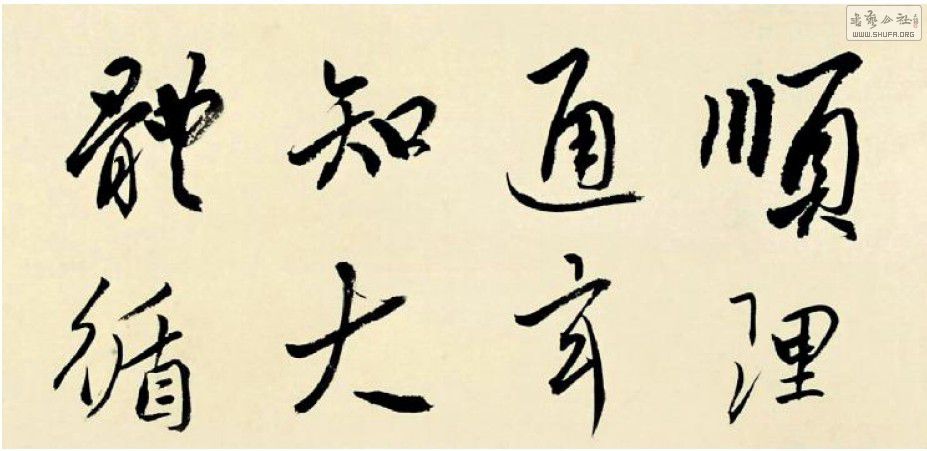 順理
通
知大
體循
書藝公社
WWW.SHUFA.ORG